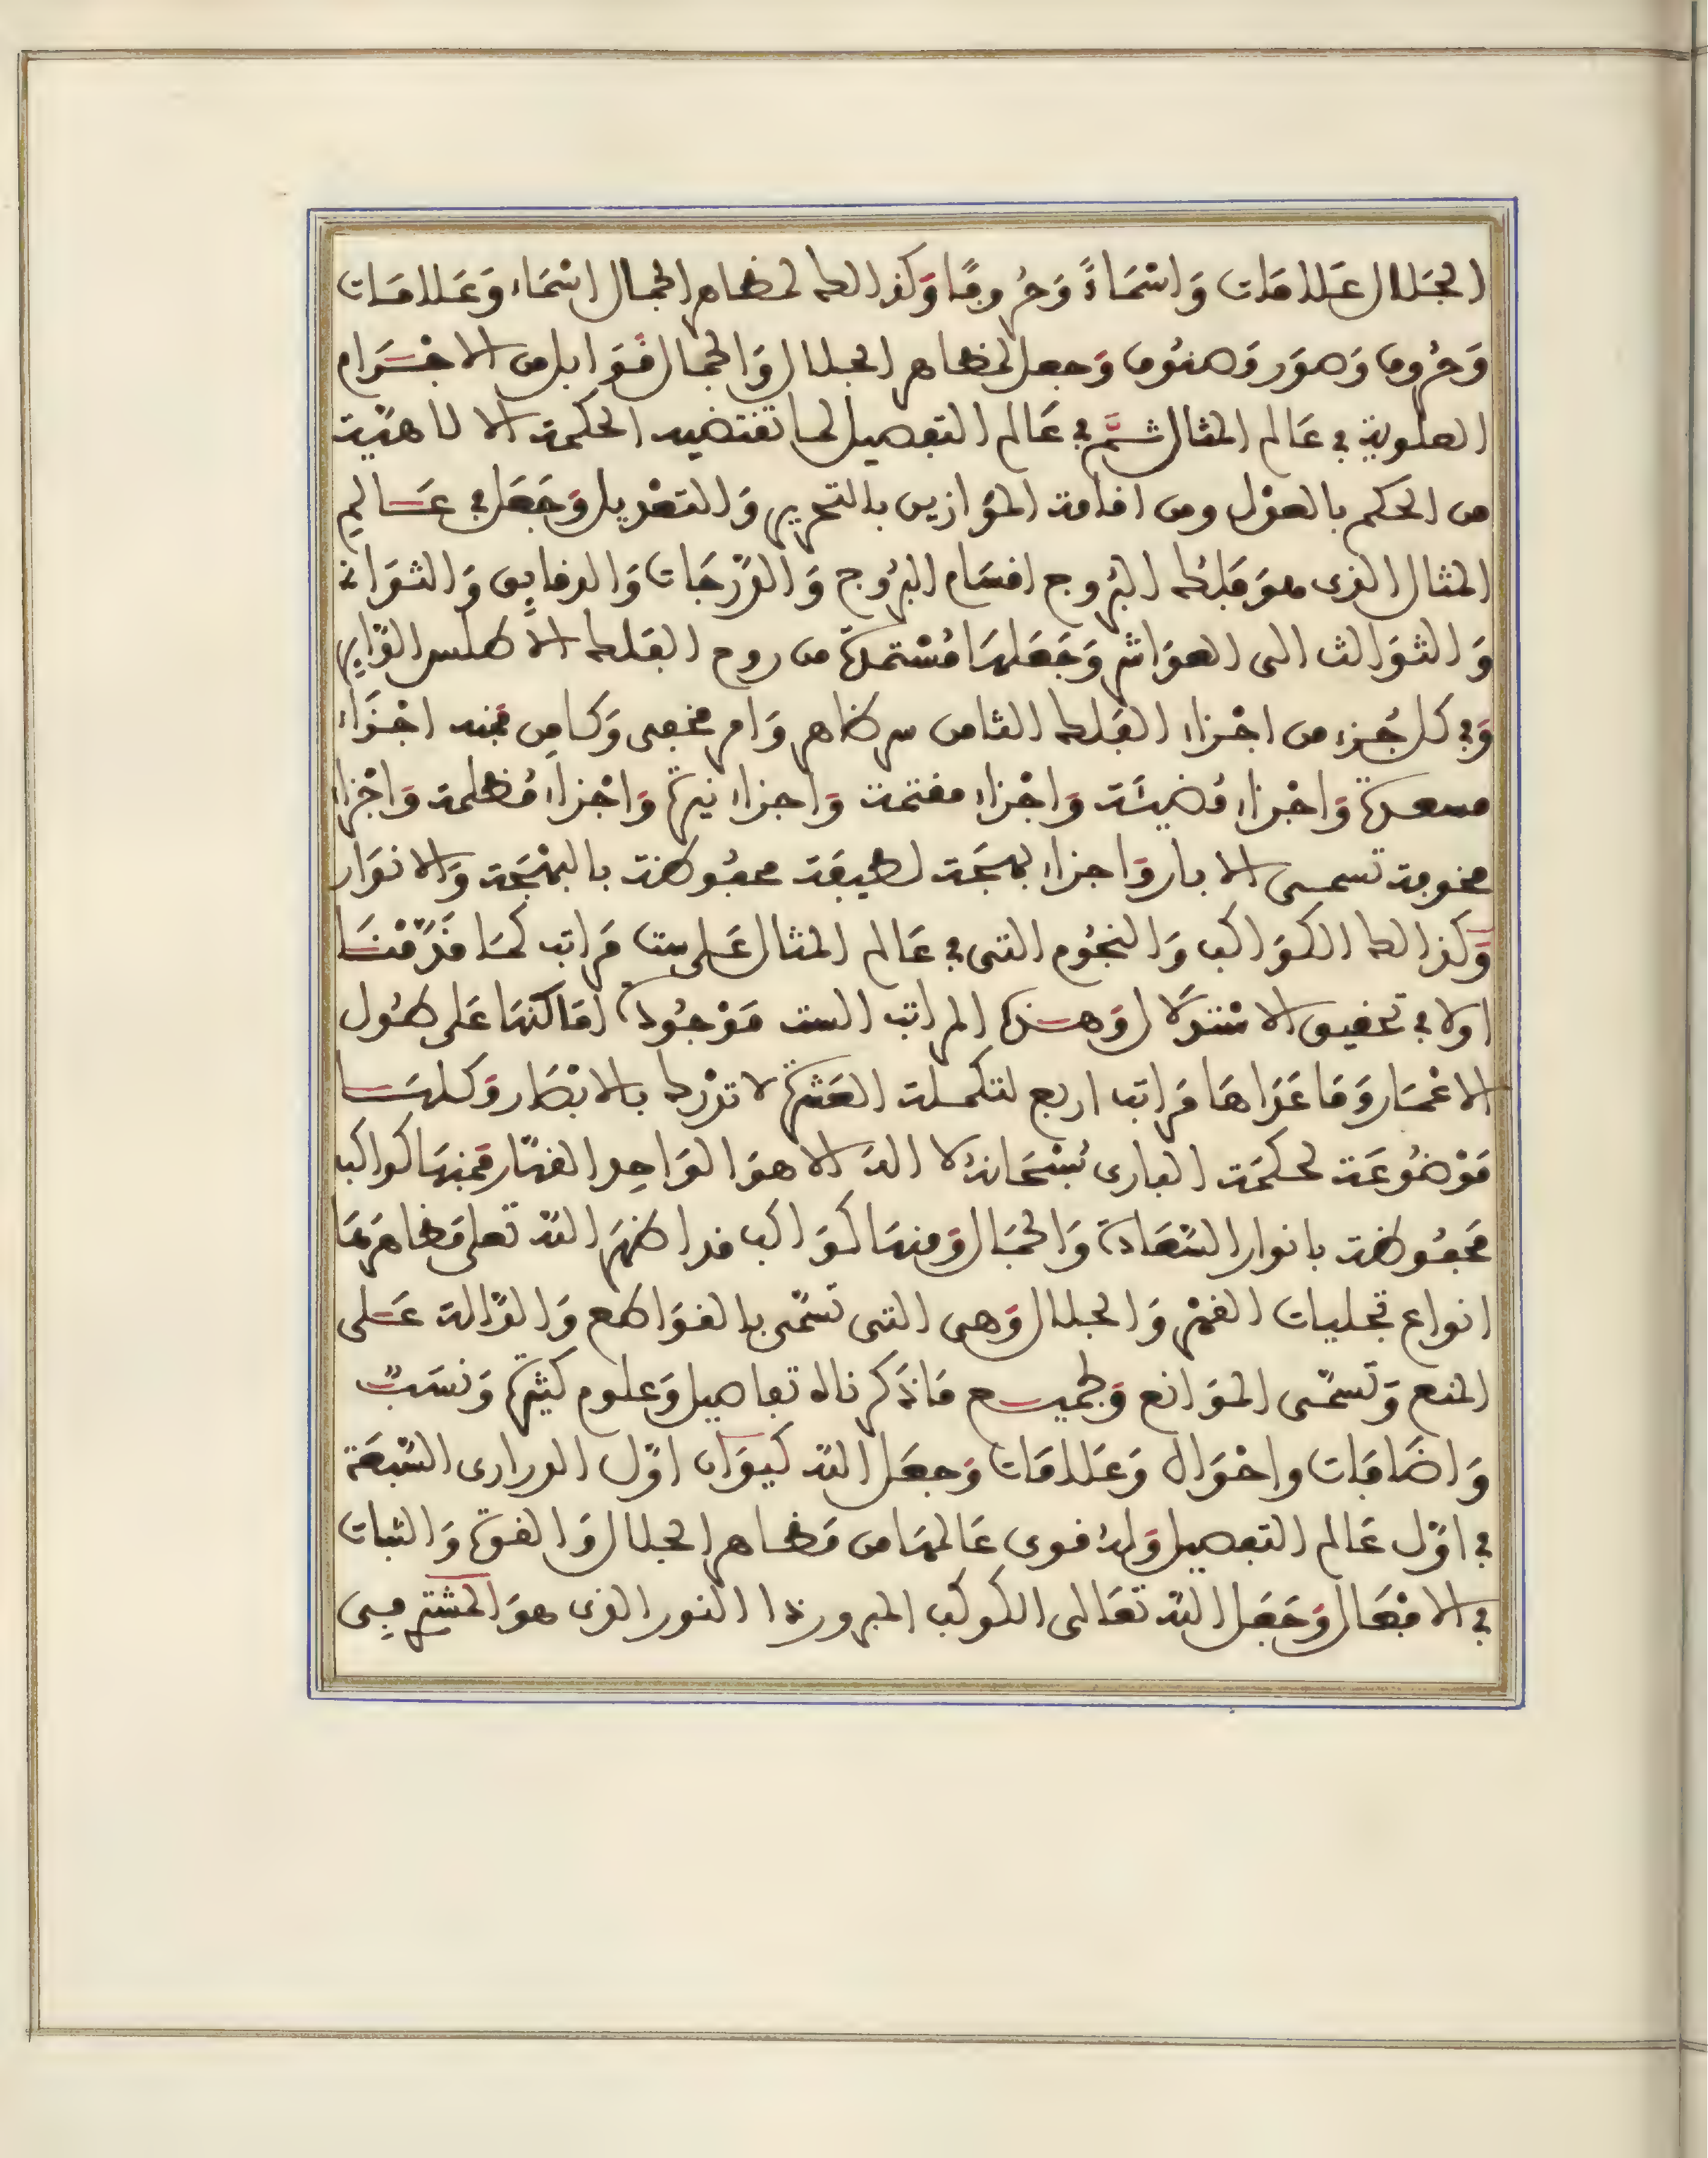 الجَلال عَلامَات وَاسْمَاءً وَحُروفًا وَكذالك لمظاهر الجمال اسْمَاء وَعَلامَات
وَحُروف وَصوَر وَصنُوف وَجعل لمظاهر الجلال وَالجمال قَوَابل من الاجْرَام
العلوية في عَالم المثال ثمَّ في عَالم التفصيل لما تقتضيه الحكمة الالاهيّة
من الحكم بالعدْل ومن اقامة الموَازين بالتحرير وَالتعْديل وَجَعَل في عَالمِ
المثال الذى هوَ فَلَك البُروج اقسَام البرُوج وَالدّرجَات وَالدقايق وَالثوَانى
وَالثوَالث الى العوَاشر وَجَعَلهَا مُسْتمدّة من روح الفلك الاطلس الدّاير
وَفي كل جُزء من اجْزاء الفلك الثامن سر ظاهر وَامر مخفى وَكامِن فمنه اجْزَاء
مسعدة وَاجْزاء مُضيئة وَاجْزاء مقتمة وَاجزاء نيرة وَاجْزاء مُظلمة وَاجْزاء
مخوفة تسمى الابار وَاجزاء بهجَة لطيفَة محفُوظة بالبهْجَة وَالانوَار
وَكذالك الكوَاكب وَالنجُوم التى في عَالم المثال عَلى ست مَراتب كمَا قدّمْنَا
اولا في تحقيق الاسْتدلَال وَهذه المراتب الست مَوْجُودة امَاكنهَا عَلى طُول
الاعْمَار وَمَا عَدَاهَا مَراتب اربع لتكملة العَشرة لا تدْرك بالابْصَار وَكلهَا
مَوْضُوعَة لحكمَة البارى سُبْحَانهُ لا اله الا هوَ الوَاحِد القهّار فمِنهَا كواكب
مَحفُوظة بانوار السَّعَادة وَالجمَال وَمنهَا كوَاكب قد اظهَرَ اللهُ تعلى مَظاهرهَا
انواع تجليات القهْر وَالجلال وَهى التى تسَمّى بالقوَاطع وَالدّالة عَلى
المنع وَتسمّى الموَانع وَلجميع مَا ذكَرناه تفاصيل وَعلوم كثيرة وَنسَبٌ
وَاضَافَات واحْوَال وَعَلامَات وَجعَل اللهُ كيوَان اوّل الدرارى السّبعَة
في اوّل عَالم التفصيل وَلهُ قوى عَالمهَا من مَظاهر الجلال وَالقوة وَالثبات
في الافعَال وَجَعَل اللهُ تعَالى الكوكب المبرور ذا النور الذى هوَ المشترى